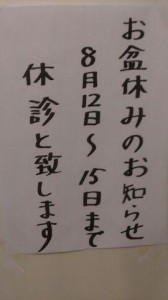 お盆休みのお知らせ
8月12日〜15日まで
休診と致します